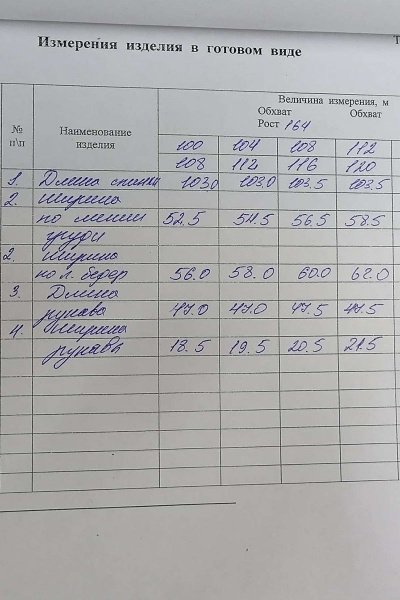 Т
Измерения изделия в готовом виде
№ п\п
Наименование изделия
Величина измерения, м
Обхват Обхват
Рост 164
100 104 108 112
108 112 116 120
1. Длина спинки 103.0 103.0 103.5 103.5
2. Ширина
по линии 52.5 54.5 56.5 58.5
груди
2. Ширина
по л. бедер 56.0 58.0 60.0 62.0
3. Длина
рукава 47.0 47.0 47.5 47.5
4. Ширина
рукава 18.5 19.5 20.5 21.5